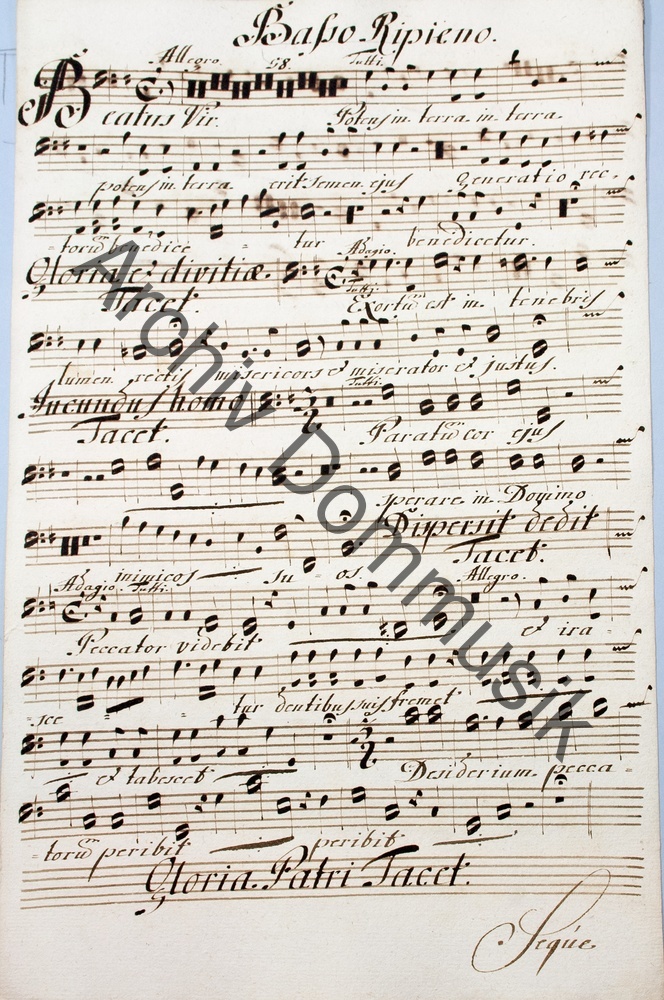 Basso Ripieno.
Allegro. 58. Tutti.
Beatus Vir. Potens in terra in terra.
potens in terra. erit semen ejus Generatio rec-
=torum̃ benedice = tur benedicetur.
Adagio.
Gloria et divitiæ. Tutti.
Tacet. Exortũ est in tenebris
lumen rectis misericors et miserator et justus.
Jucundus homo Tutti.
Tacet. Paratũ cor ejus
sperare in Domino
Dispersit dedit
Tacet.
inimicos su = os.
Adagio. Tutti. Allegro.
Peccator videbit et ira-
=sce = tur dentibus suis fremet
et tabescet Desiderium pecca=
=torũ peribit peribit
Gloria Patri Tacet.
Seqúe
Archiv Dommusik